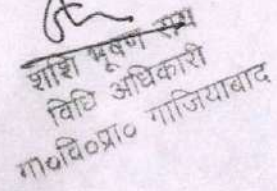 शशि भूषण राय
विधि अधिकारी
गा०वि०प्रा० गाजियाबाद